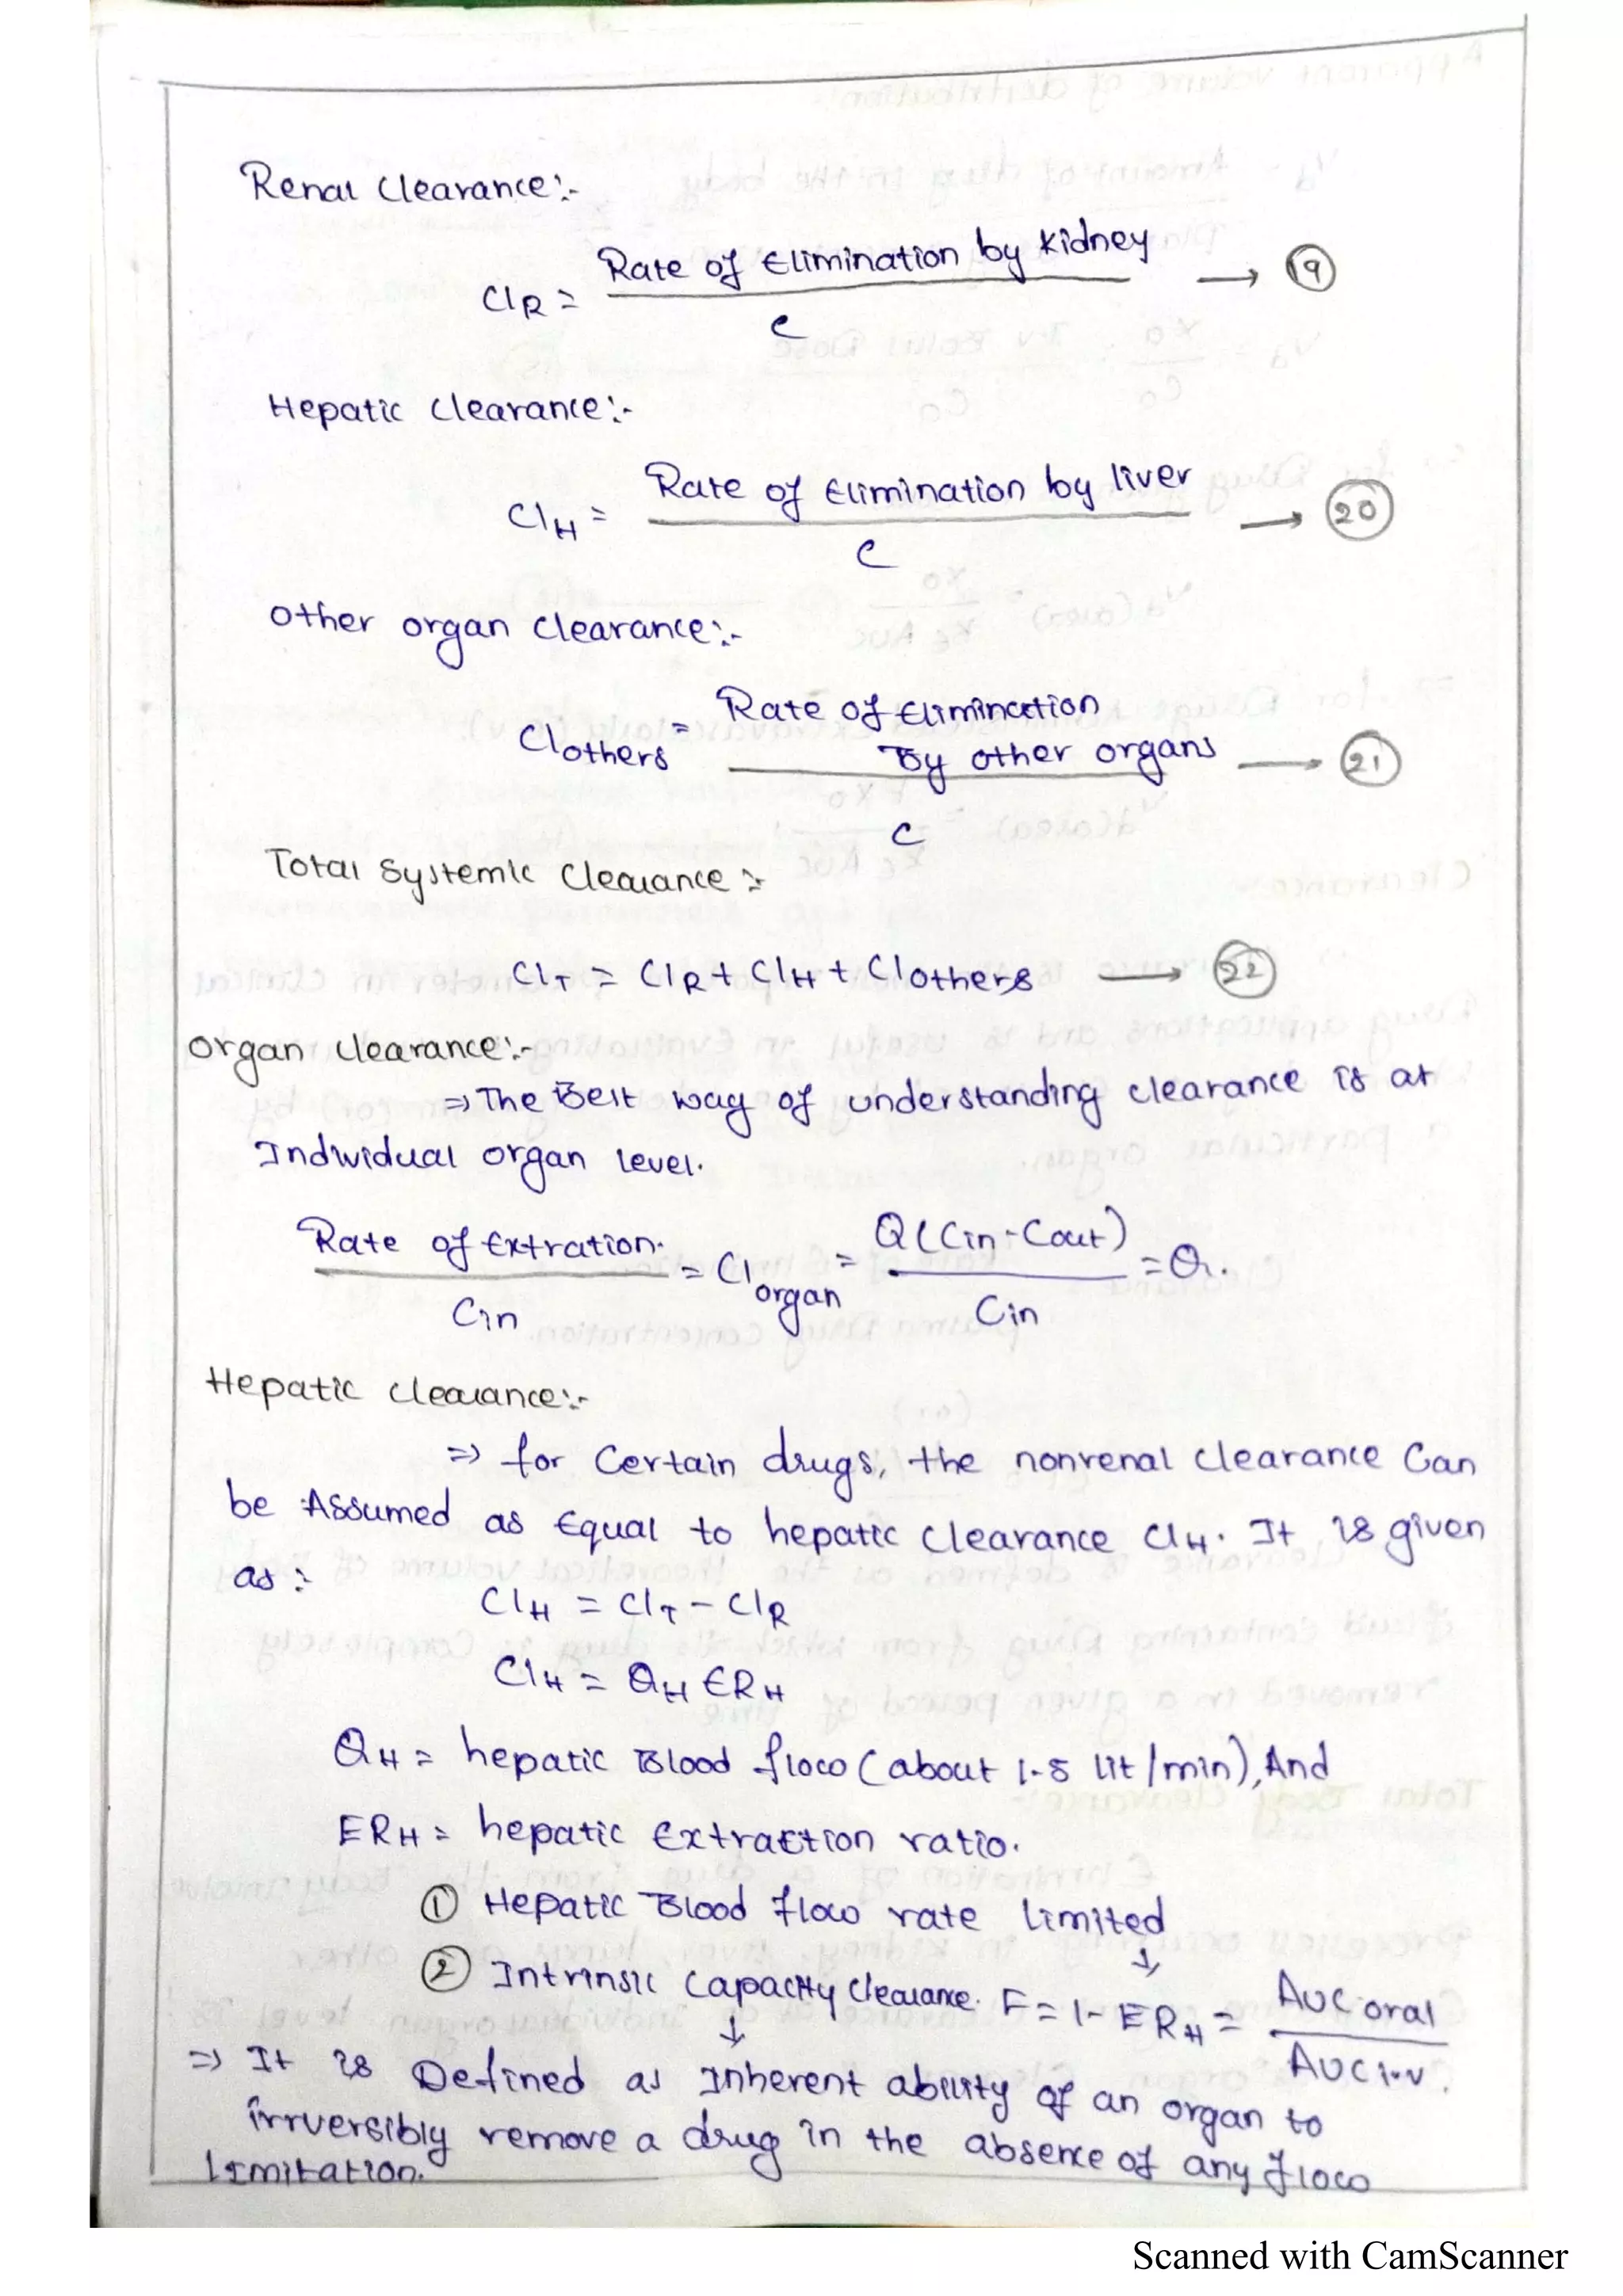 Renal Clearance:-
ClR = Rate of Elimination by kidney → 19
C
Hepatic Clearance:-
ClH = Rate of Elimination by liver → 20
C
Other organ Clearance:-
Clothers = Rate of Elimination
By other organs → 21
C
Total Systemic Clearance :-
ClT = ClR + ClH + Clothers → 22
Organ Clearance:-
⇒ The Best way of understanding clearance is at
Individual organ level.
Rate of Extration. = Cl organ = Q(Cin - Cout) = Q.
Cin Cin
Hepatic Clearance:-
⇒ for Certain drugs, the nonrenal clearance Can
be Assumed as Equal to hepatic Clearance ClH. It is given
as :-
ClH = ClT - ClR
ClH = QH ERH
QH = hepatic Blood flow (about 1.5 lit/min), And
ERH = hepatic Extraction ratio.
① Hepatic Blood flow rate limited
↓
② Intrinsic Capacity Clearance. F = 1 - ERH = AUC oral
↓ AUC i.v.
⇒ It is Defined as Inherent ability of an organ to
irrversibly remove a drug in the absence of any flow
limitation.
Scanned with CamScanner